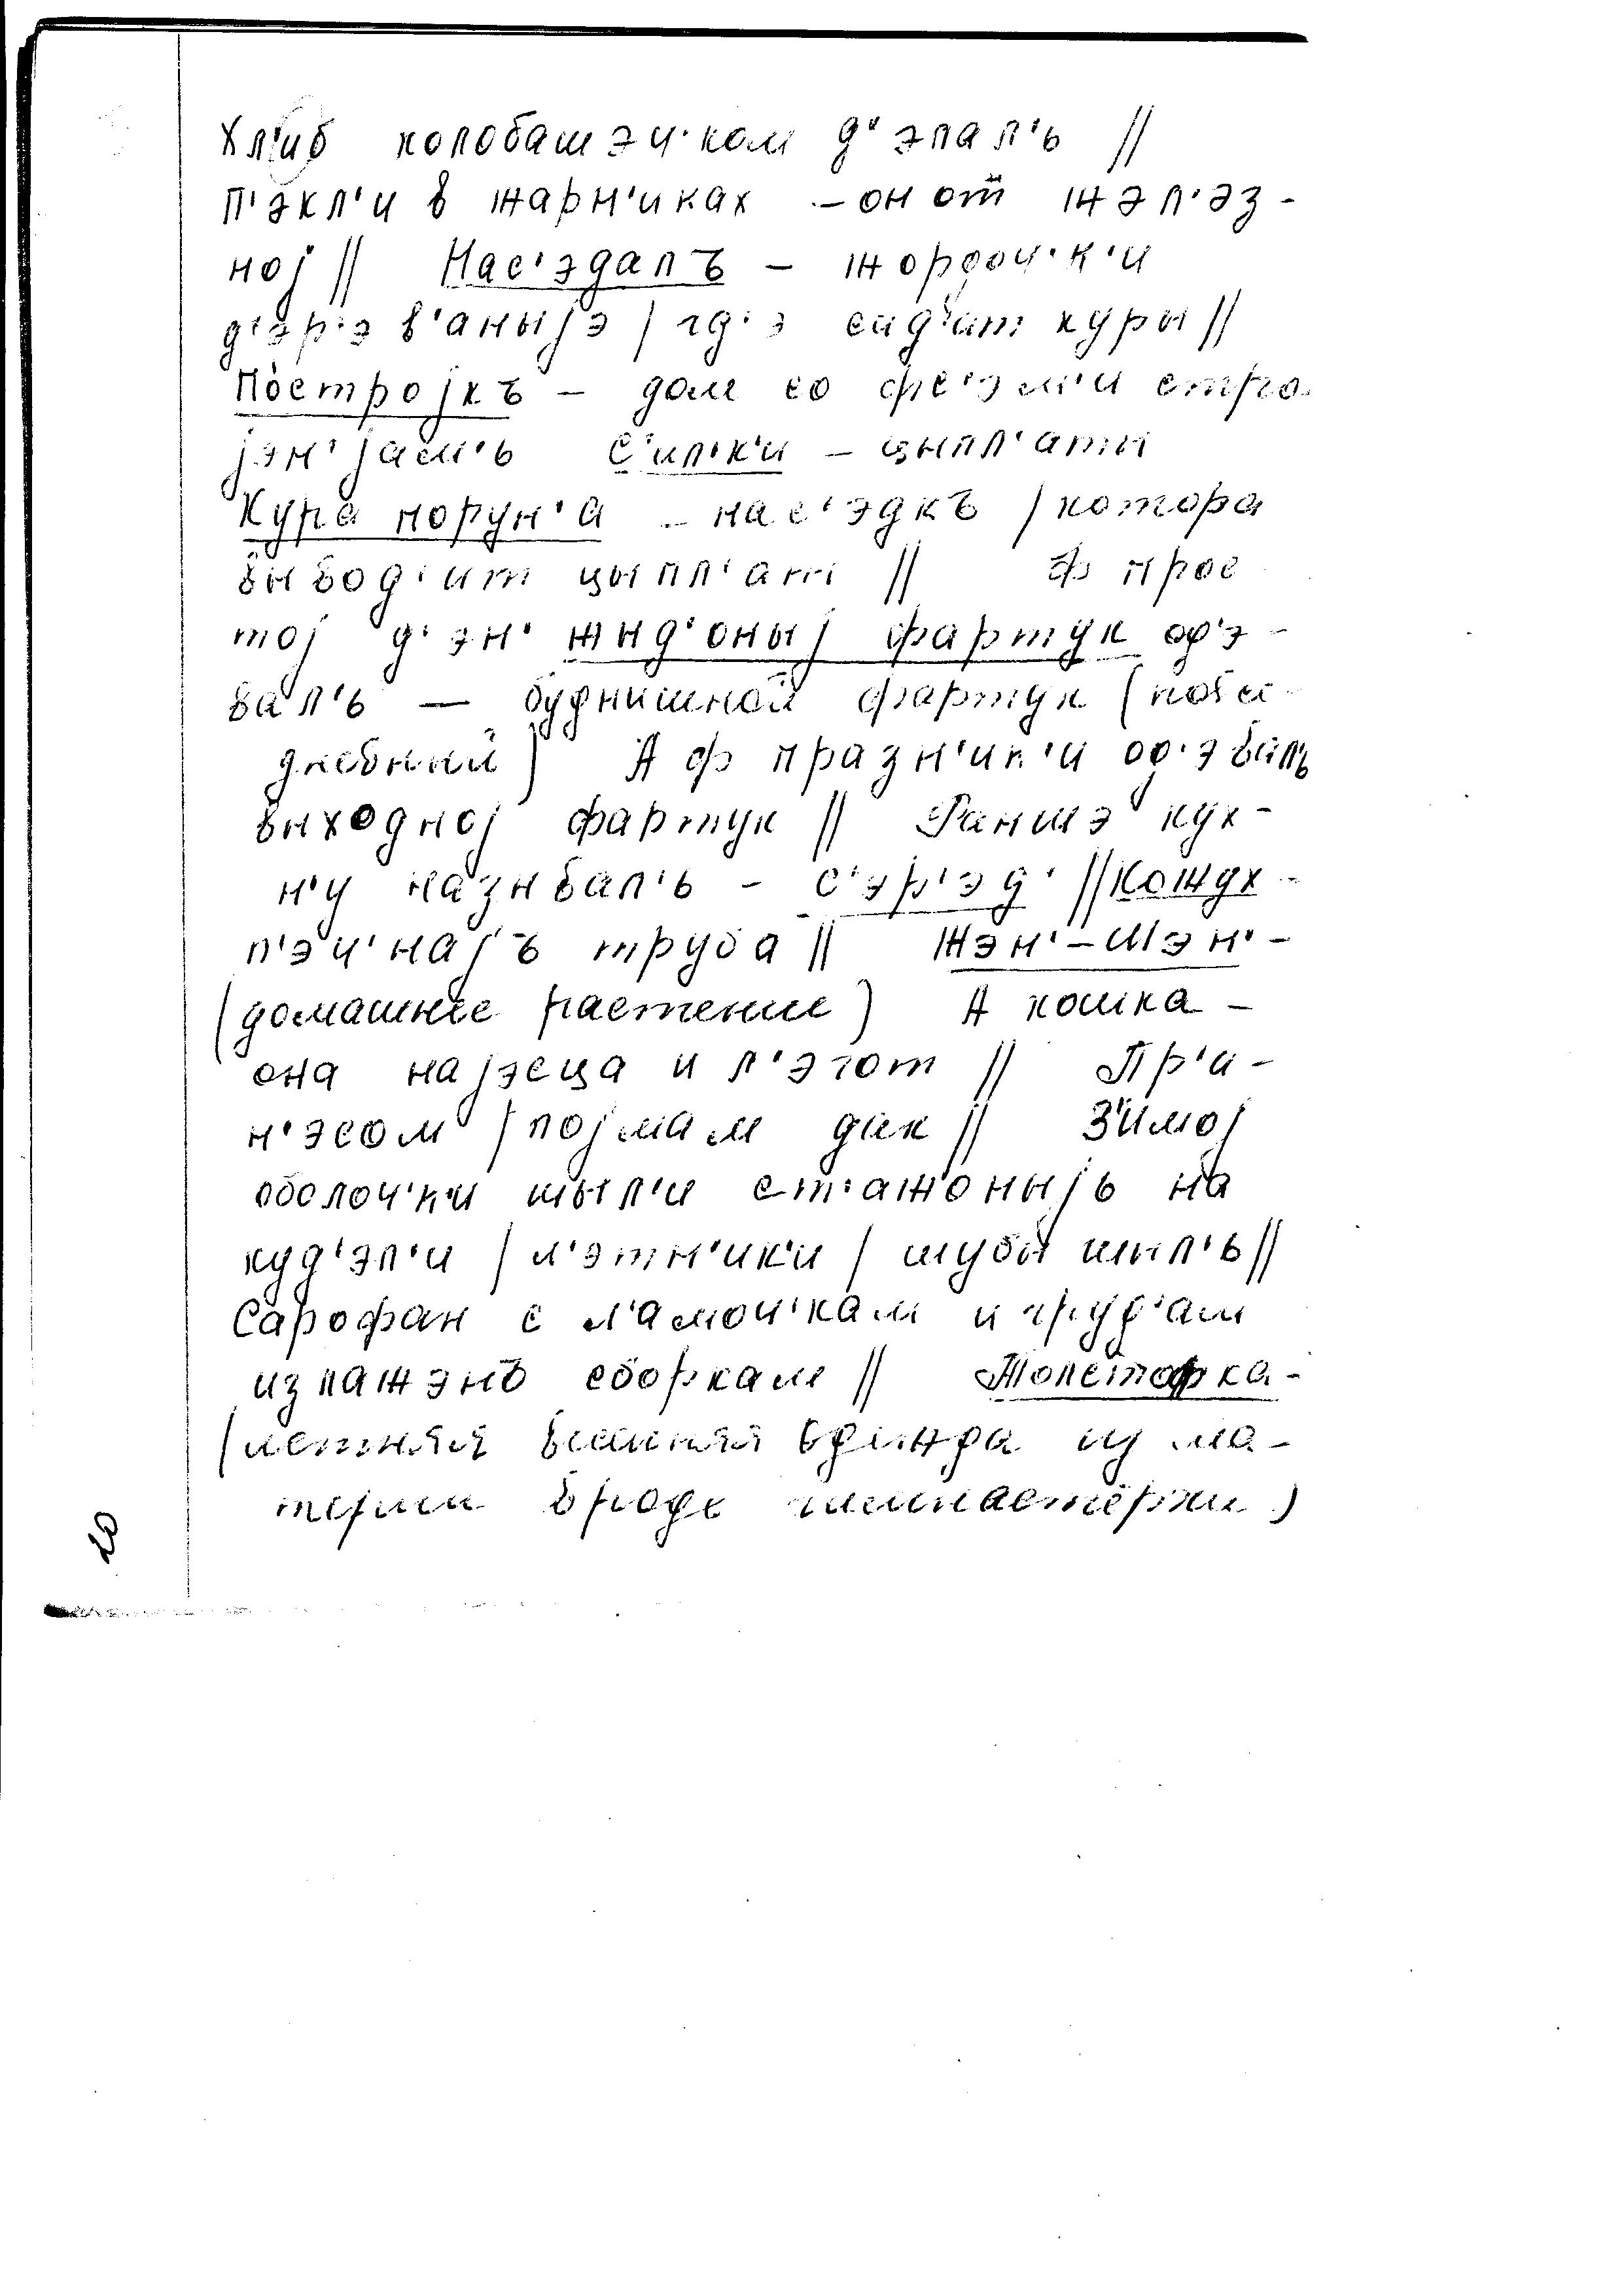 хл'иб колобашэч'ком д'элал'ь //
п'экл'и в жарн'иках – он от жэл'эз-
ној // Нас'эдалъ – жордоч'к'и
д'эр'эв'аныјэ / гд'э сид'ат куры //
Постројкъ – дом со фс'эм'и стро-
јэн'јам'ь С'ипк'и – цыпл'аты
Кура норун'а – нас'эдкъ / котора
выводит цыпл'ат // Ф прос
тој д'эн' жид'оныј фартук од'э-
вал'ь — буднишной фартук (повсе-
дневный) А ф празн'ик'и од'эвал'ь
выходној фартук // Раншэ кух-
н'у называл'ь – с'эр'эд' // Кожух –
п'эч'најъ труба // Жэн'–Шэн' –
(домашнее растение) А кошка –
она најэсца и л'эгот // Пр'и-
н'эсом / појмам дак // З'имој
оболоч'к'и шыл'и ст'ажоныјь на
куд'эл'и / л'этн'ик'и / шубы шыл'ь //
Сарофан с л'амоч'кам и груд'ам
излажэнъ сборкам // Толстофка –
(летняя верхняя одежда из ма-
терии вроде гимнастёрки)
20